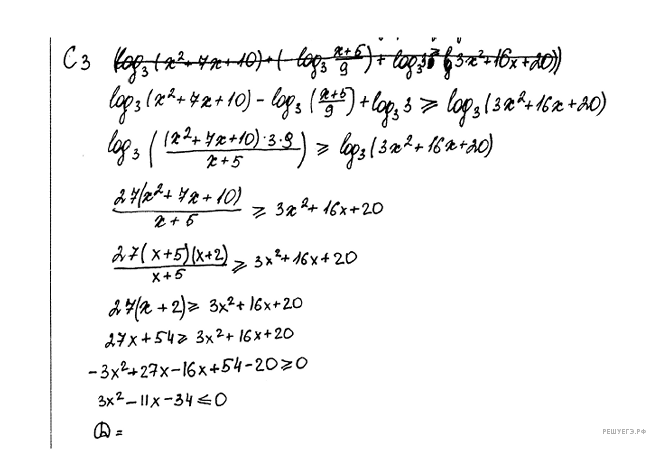 С3 (log₃(x²+7x+10)+(-log₃ (x+5)/9)+log₃3 ≥ (3x²+16x+20))
log₃(x²+7x+10) - log₃((x+5)/9) + log₃3 ≥ log₃(3x²+16x+20)
log₃(((x²+7x+10)·3·9)/(x+5)) ≥ log₃(3x²+16x+20)
27(x²+7x+10)/(x+5) ≥ 3x²+16x+20
27(x+5)(x+2)/(x+5) ≥ 3x²+16x+20
27(x+2) ≥ 3x²+16x+20
27x+54 ≥ 3x²+16x+20
-3x²+27x-16x+54-20 ≥ 0
3x²-11x-34 ≤ 0
D =
РЕШУЕГЭ.РФ